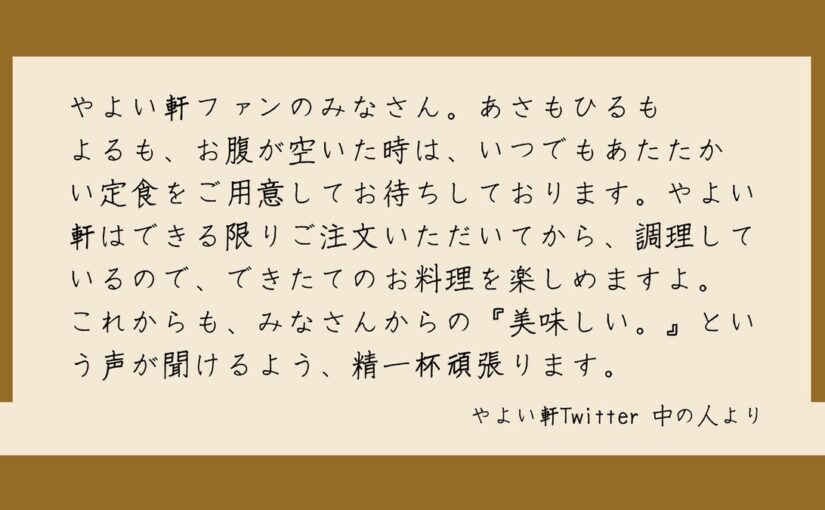 やよい軒ファンのみなさん。あさもひるも
よるも、お腹が空いた時は、いつでもあたたか
い定食をご用意してお待ちしております。やよい
軒はできる限りご注文いただいてから、調理して
いるので、できたてのお料理を楽しめますよ。
これからも、みなさんからの『美味しい。』とい
う声が聞けるよう、精一杯頑張ります。
やよい軒Twitter 中の人より